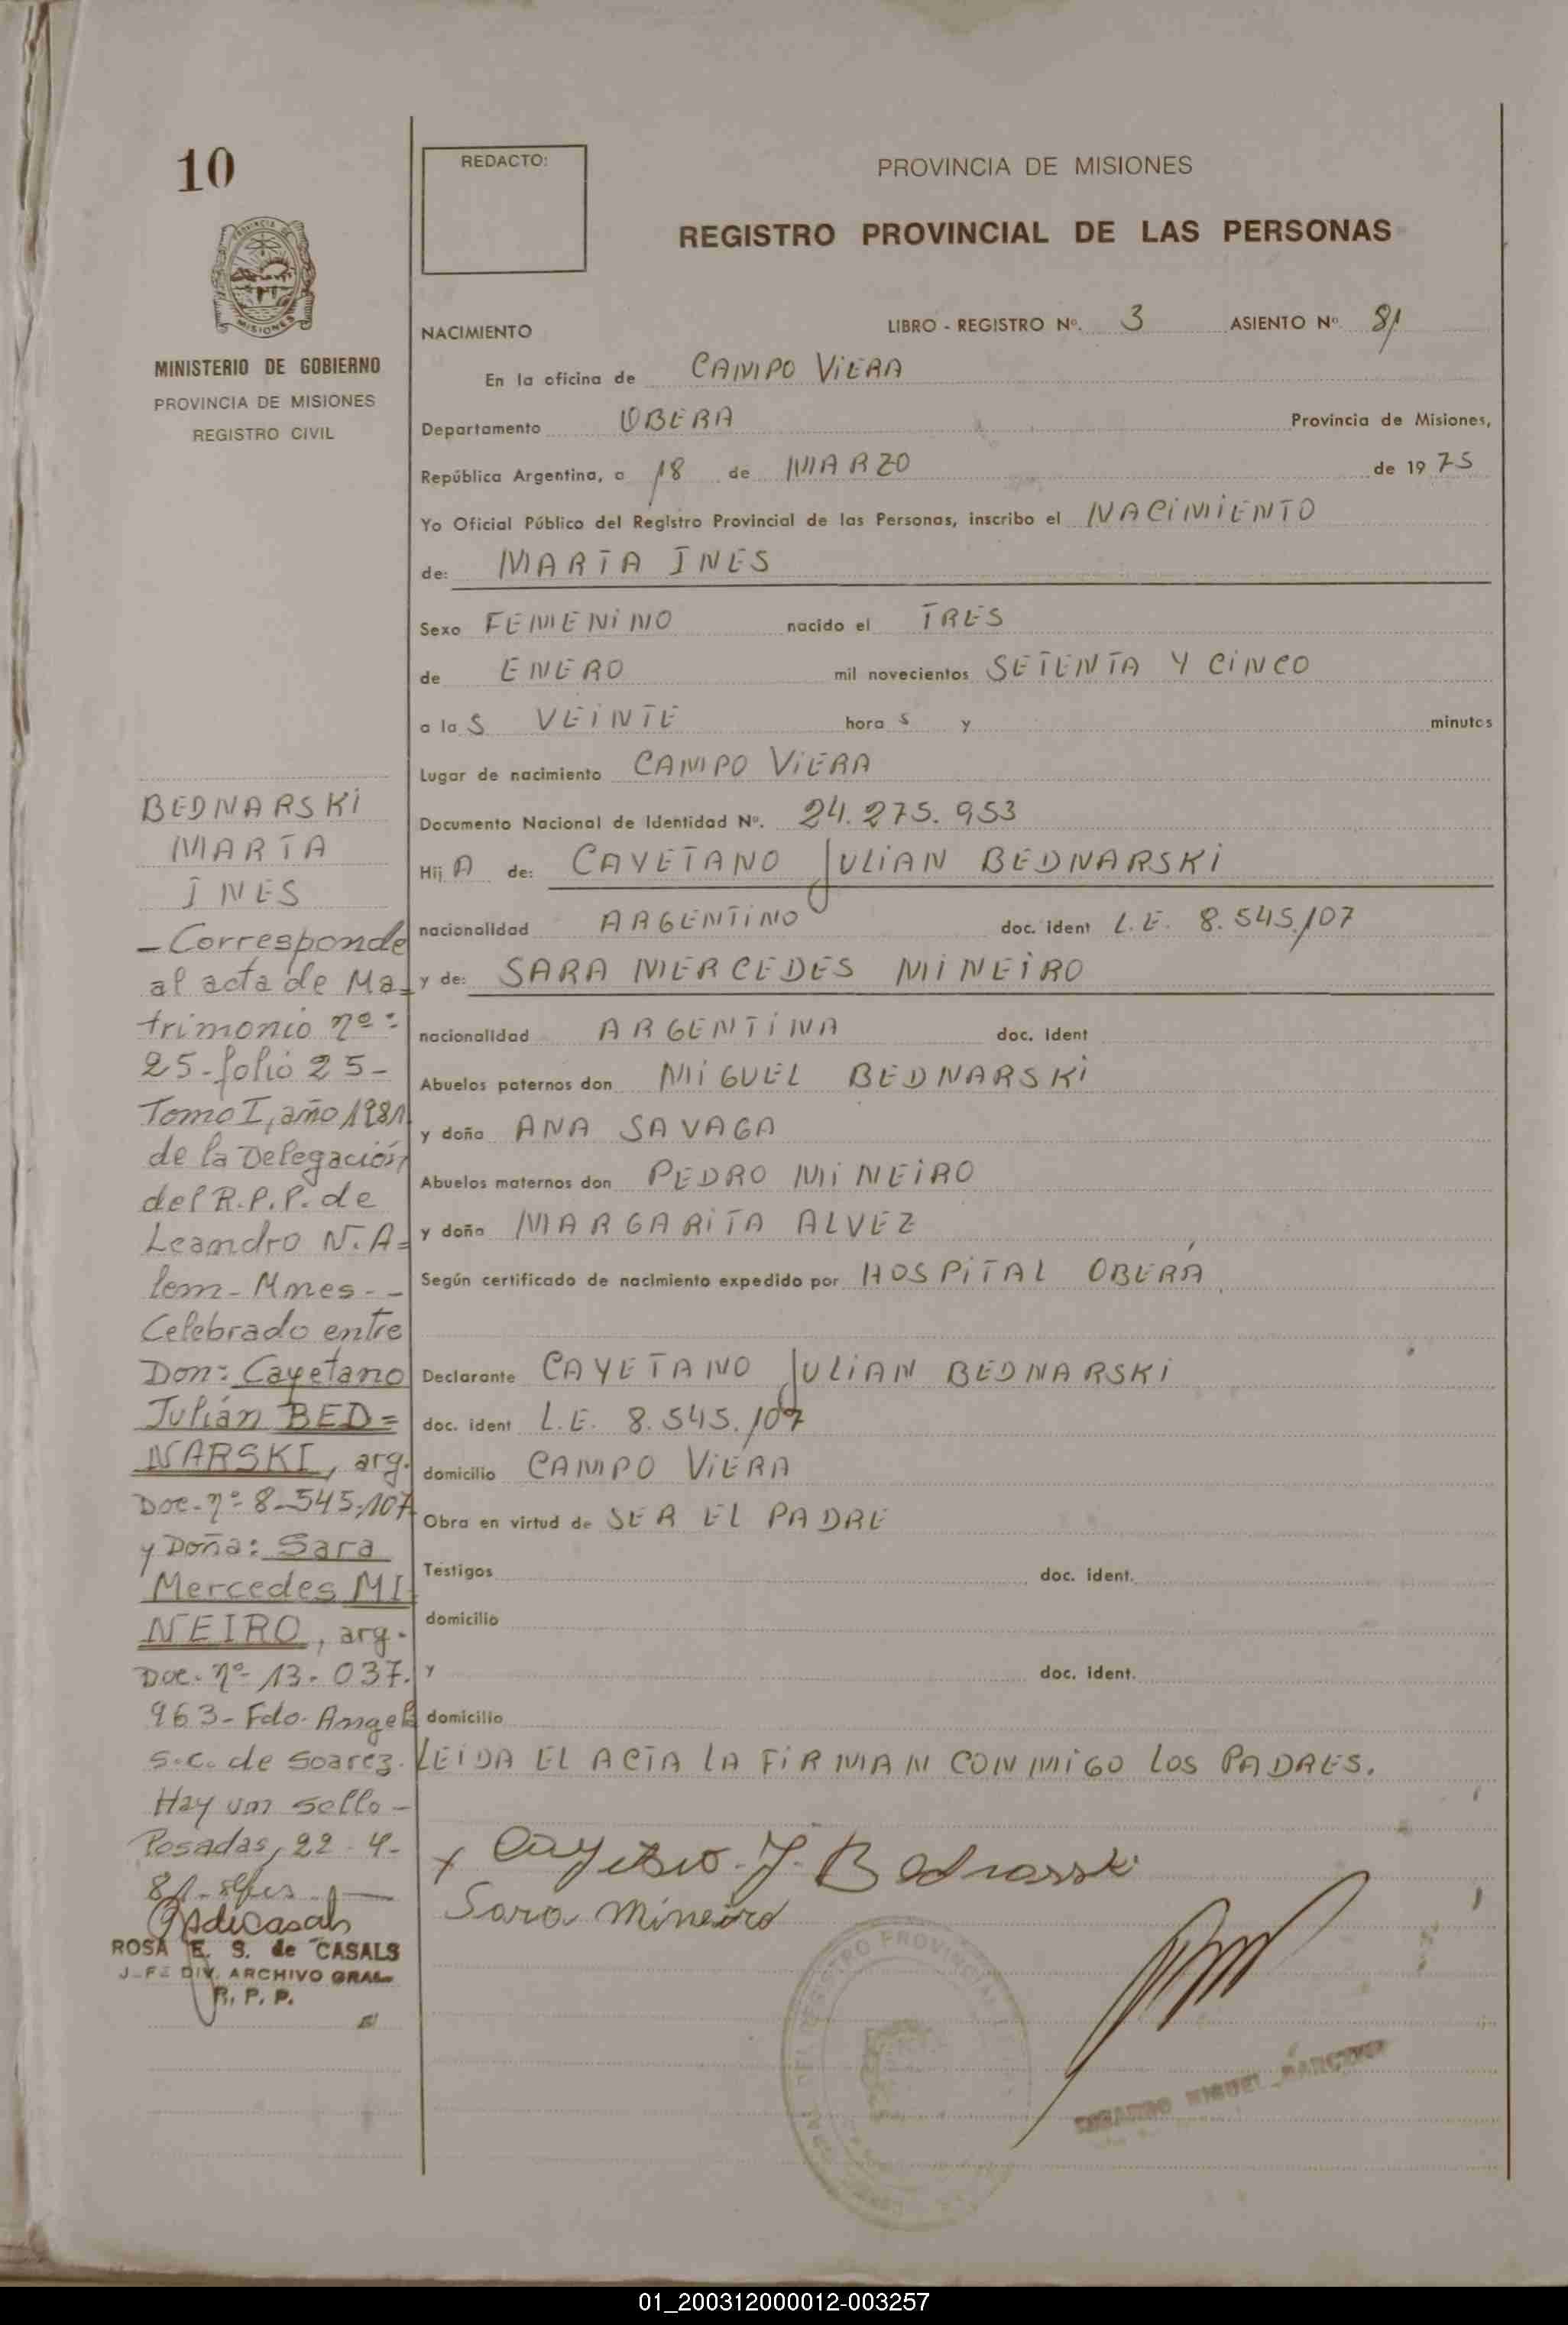 10
PROVINCIA DE
MISIONES
MINISTERIO DE GOBIERNO
PROVINCIA DE MISIONES
REGISTRO CIVIL
REDACTO:
PROVINCIA DE MISIONES
REGISTRO PROVINCIAL DE LAS PERSONAS
NACIMIENTO LIBRO - REGISTRO Nº. 3 ASIENTO Nº 81
En la oficina de CAMPO VIERA
Departamento OBERA Provincia de Misiones,
República Argentina, a 18 de MARZO de 1975
Yo Oficial Público del Registro Provincial de las Personas, inscribo el NACIMIENTO
de: MARTA INES
Sexo FEMENINO nacido el TRES
de ENERO mil novecientos SETENTA Y CINCO
a las VEINTE horas y minutos
Lugar de nacimiento CAMPO VIERA
Documento Nacional de Identidad Nº. 24.275.953
Hija de: CAYETANO JULIAN BEDNARSKI
nacionalidad ARGENTINO doc. ident L.E. 8.545.107
y de: SARA MERCEDES MINEIRO
nacionalidad ARGENTINA doc. ident
Abuelos paternos don MIGUEL BEDNARSKI
y doña ANA SAVAGA
Abuelos maternos don PEDRO MINEIRO
y doña MARGARITA ALVEZ
Según certificado de nacimiento expedido por HOSPITAL OBERÁ
Declarante CAYETANO JULIAN BEDNARSKI
doc. ident L.E. 8.545.107
domicilio CAMPO VIERA
Obra en virtud de SER EL PADRE
Testigos doc. ident.
domicilio
y doc. ident.
domicilio
LEIDA EL ACTA LA FIRMAN CONMIGO LOS PADRES.
x Cayetano. J. Bednarski
Sara Mineiro
REGISTRO PROVINCIAL
MIGUEL
BEDNARSKI
MARTA
INES
- Corresponde
al acta de Ma=
trimonio nº:
25-folio 25-
Tomo I, año 1981
de la Delegación
del R.P.P. de
Leandro N. A=
lem- Mnes--
Celebrado entre
Don: Cayetano
Julián BED=
NARSKI, arg.
Doc-nº-8-545-107
y Doña: Sara
Mercedes MI-
NEIRO, arg-
Doc-nº-13-037.
963-Fdo-Angela
S.C. de Soarez.
Hay un sello-
Posadas, 22-4-
81-
ROSA E. S. de CASALS
JEFE DIV. ARCHIVO GRAL.
R. P. P.
01_200312000012-003257